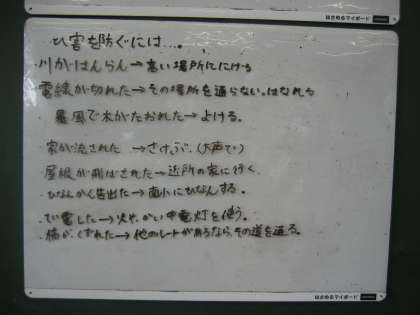 はさめるマイボード
ひ害を防ぐには…。
川がはんらん→高い場所ににげる
電線が切れた→その場所を通らない。はなれる
暴風で木がたおれた→よける。
家が流された→さけぶ。(大声で)
屋根が飛ばされた→近所の家に行く。
ひなんかん告出た→直ぐにひなんする。
てい電した→火や、かい中電灯を使う。
橋がくずれた→他のルートがあるなら、その道を通る。
はさめるマイボード